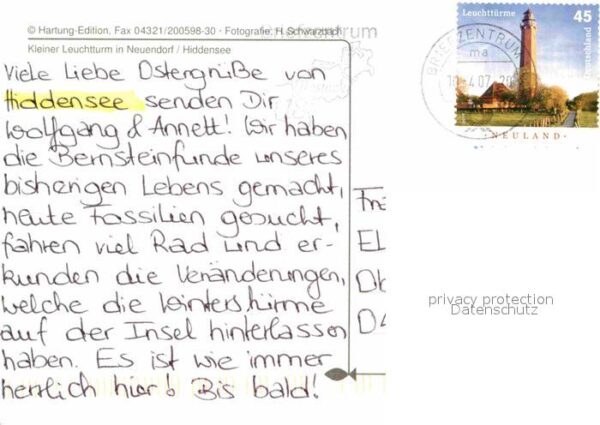 © Hartung-Edition, Fax 04321/200598-30 · Fotografie: H. Schwarzbach
Kleiner Leuchtturm in Neuendorf / Hiddensee
Viele Liebe Ostergrüße von
Hiddensee senden Dir
Wolfgang & Annett! Wir haben
die Bernsteinfunde unseres
bisherigen Lebens gemacht,
heute Fossilien gesucht,
fahren viel Rad und er-
kunden die Veränderungen,
welche die Winterstürme
auf der Insel hinterlassen
haben. Es ist wie immer
herrlich hier! Bis bald!
Leuchttürme 45
Deutschland
NEULAND
BRIEFZENTRUM
ma
privacy protection
Datenschutz